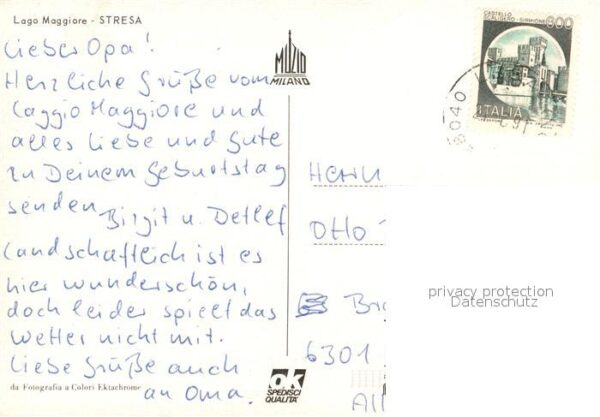 Lago Maggiore - STRESA
Lieber Opa!
Herzliche Grüße vom
Laggio Maggiore und
alles Liebe und Gute
zu Deinem Geburtstag
senden Birgit u. Detlef
Landschaftlich ist es
hier wunderschön,
doch leider spielt das
Wetter nicht mit.
Liebe Grüße auch
an Oma.
da Fotografia a Colori Ektachrome
MUZIO
MILANO
CASTELLO
SCALIGERO - SIRMIONE
800
ITALIA
Otto
6301
privacy protection
Datenschutz
OK
SPEDISCI
QUALITÀ